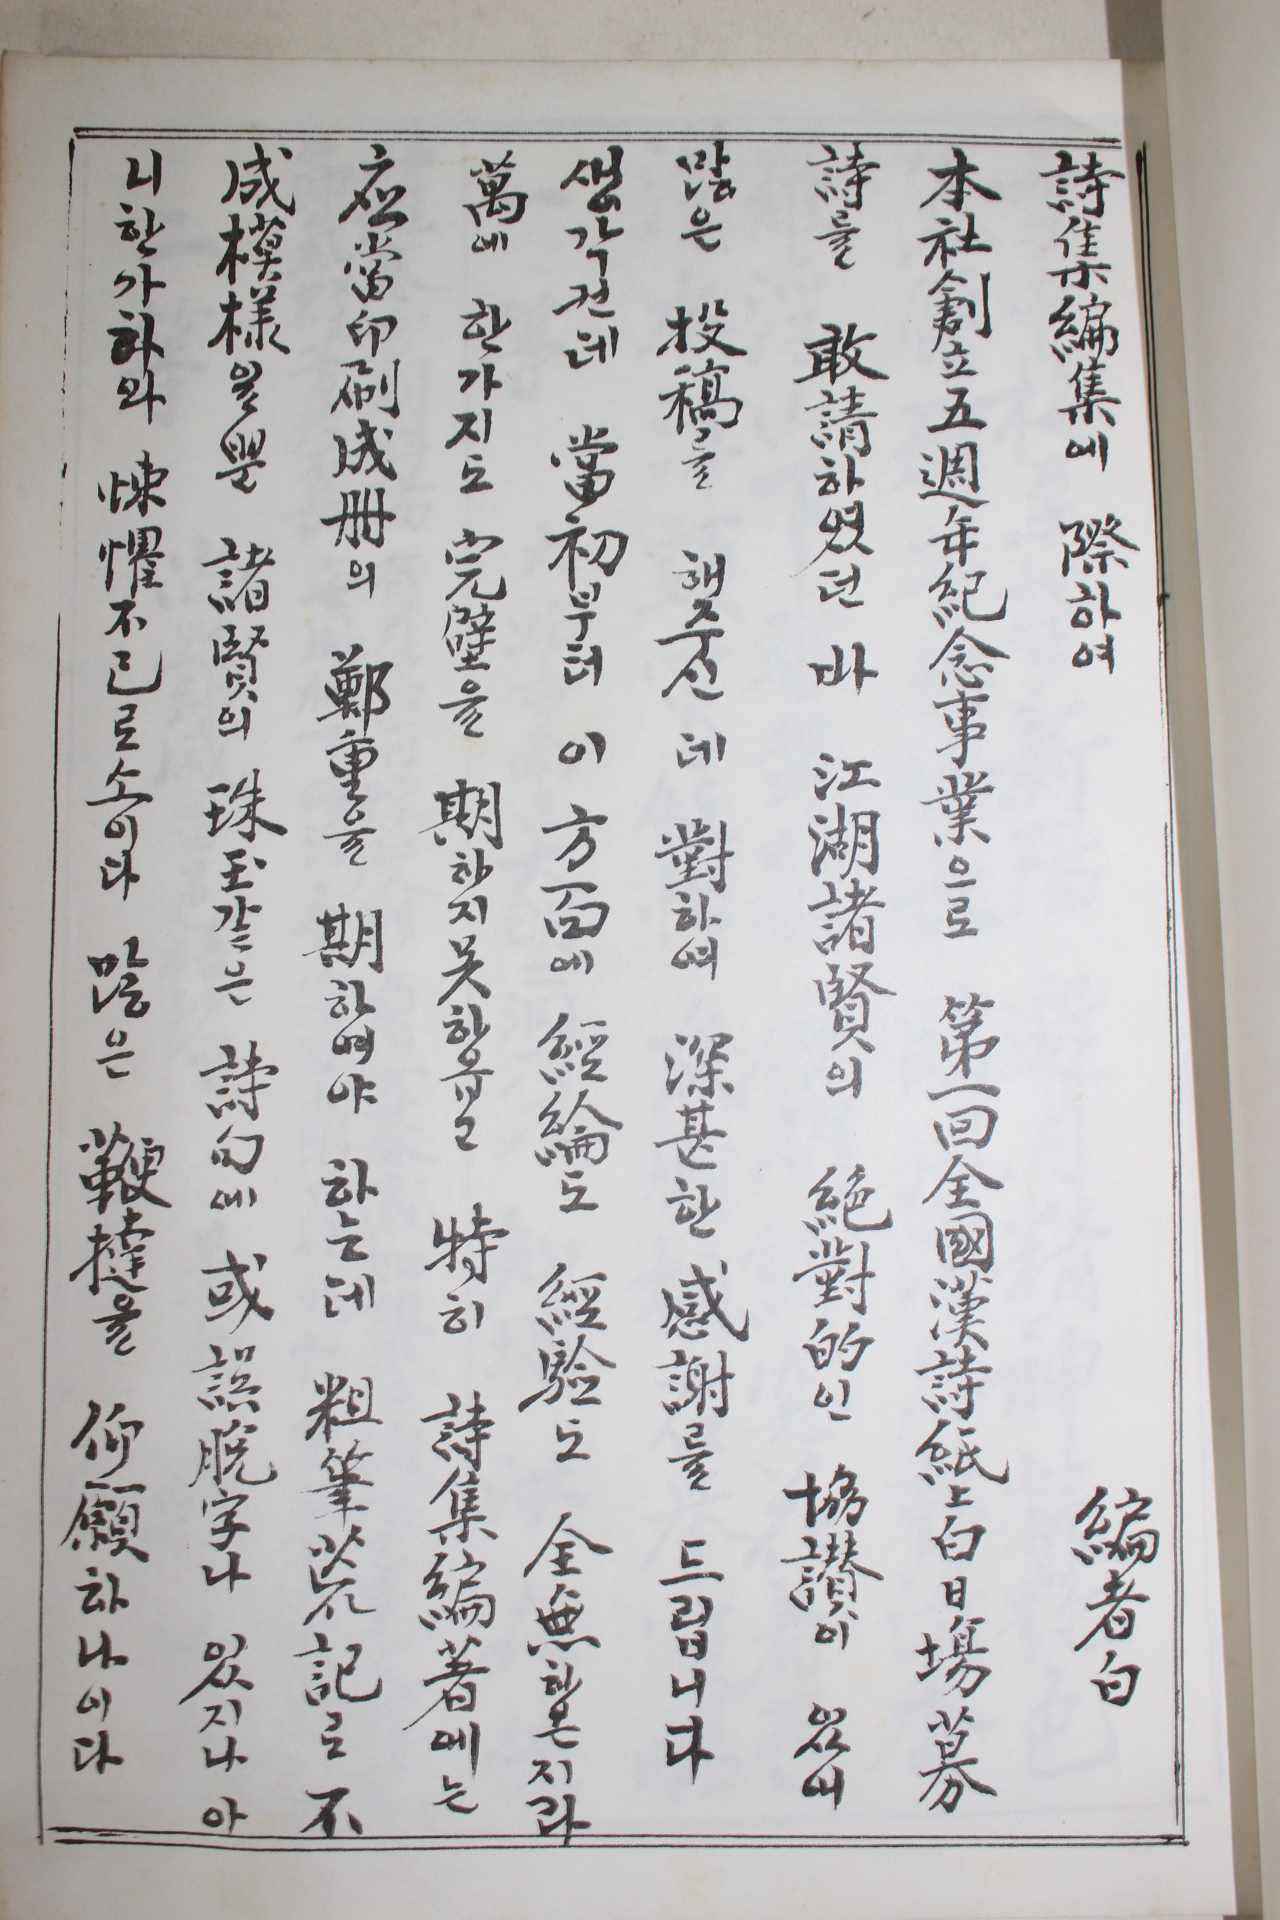 詩集編集에 際하여 編者白
本社創立五週年紀念事業으로 第一回全國漢詩紙上白日場募
詩를 敢請하였던바 江湖諸賢의 絶對的인 協讃이 있어
많은 投稿를 해주신데 對하여 深甚한 感謝를 드립니다
생각컨데 當初부터 이 方面에 經綸도 經驗도 全無하온지라
萬에 한가지도 完璧을 期하지못하옵고 特히 詩集編著에는
应當印刷成冊의 鄭重을 期하여야 하는데 粗筆荒記로 不
成模樣을뿐 諸賢의 珠玉같은 詩句에 或誤脫字나 있지나 아
니한가하와 悚懼不已로소이다 많은 鞭撻을 仰願하나이다